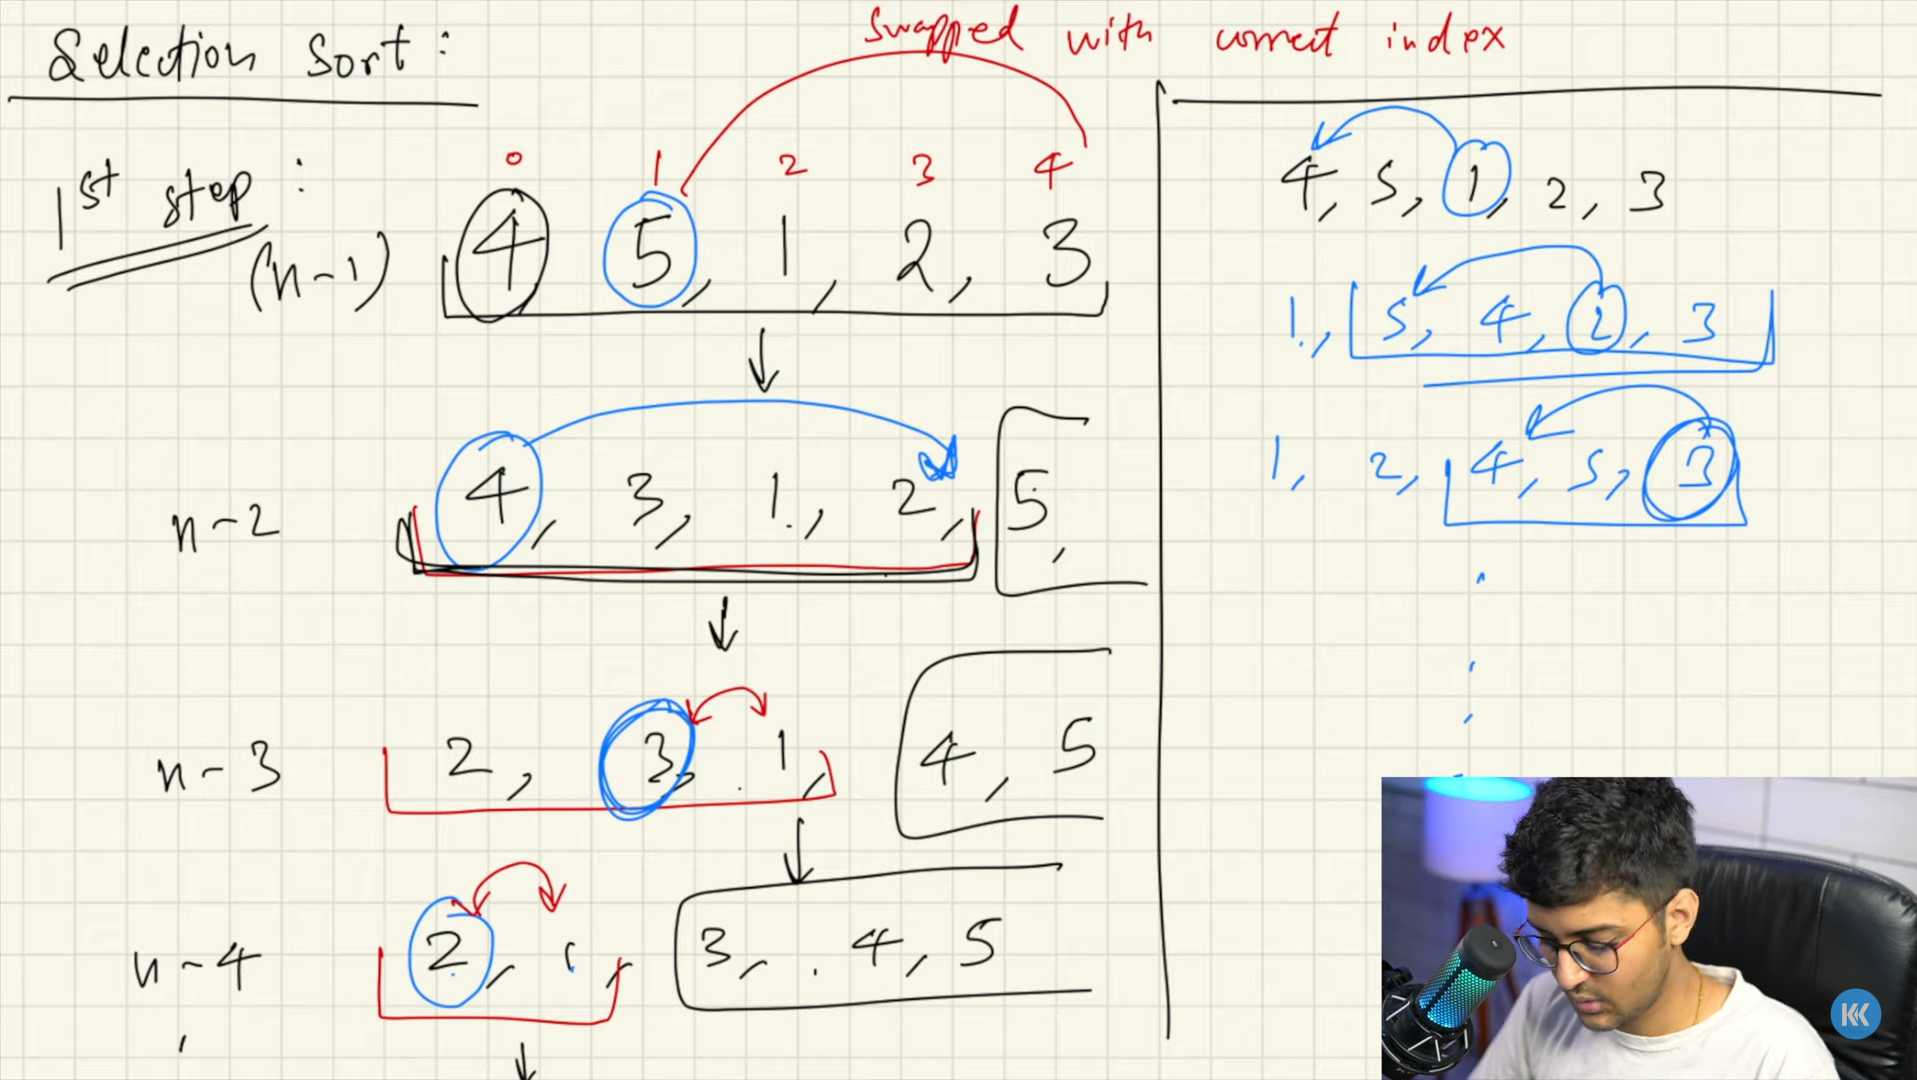 Selection Sort :
swapped with correct index
1st step :
0 1 2 3 4
(n-1) 4 5, 1, 2, 3,
n-2 4, 3, 1, 2, 5,
n-3 2, 3, 1, 4, 5
n-4 2, 1, 3, 4, 5
4, 5, 1, 2, 3
1, 5, 4, 2, 3
1, 2, 4, 5, 3
KK